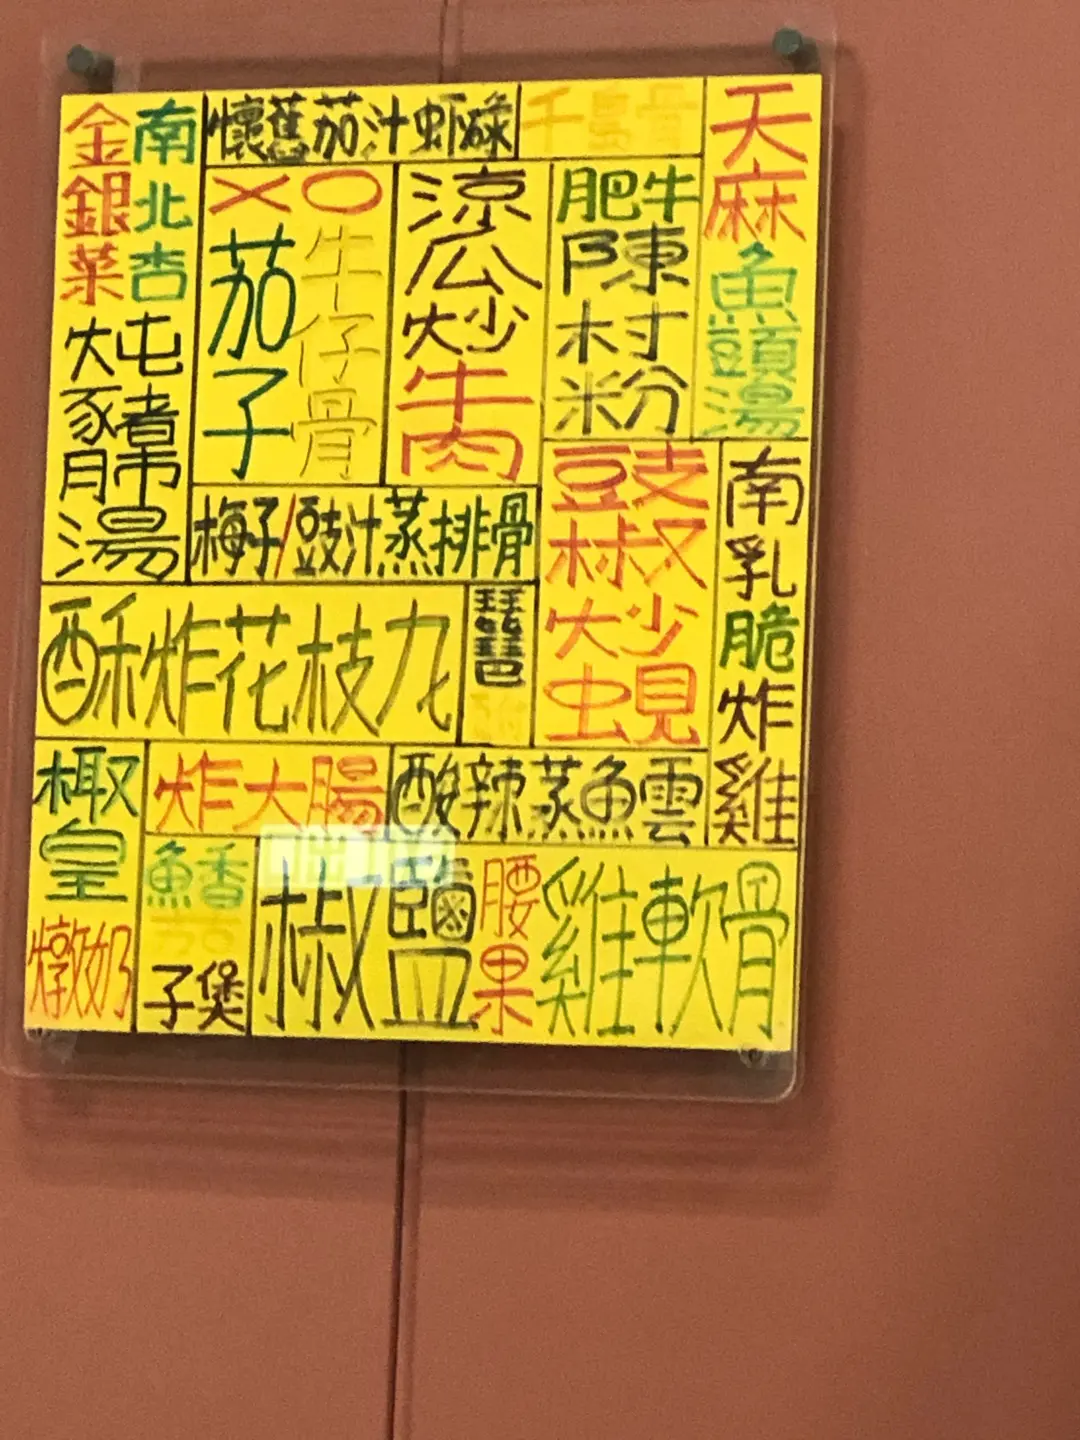 金銀菜
南北杏
炖豬湯
懷舊茄汁蝦碌
千島骨
天麻魚頭湯
XO
茄子
牛仔骨
涼瓜炒牛肉
肥牛陳村粉
梅子/豉汁蒸排骨
豉椒炒蜆
南乳脆炸雞
酥炸花枝丸
琵琶
椰皇燉奶
炸大腸
酸辣蒸魚雲
魚香茄子煲
椒鹽腰果雞軟骨